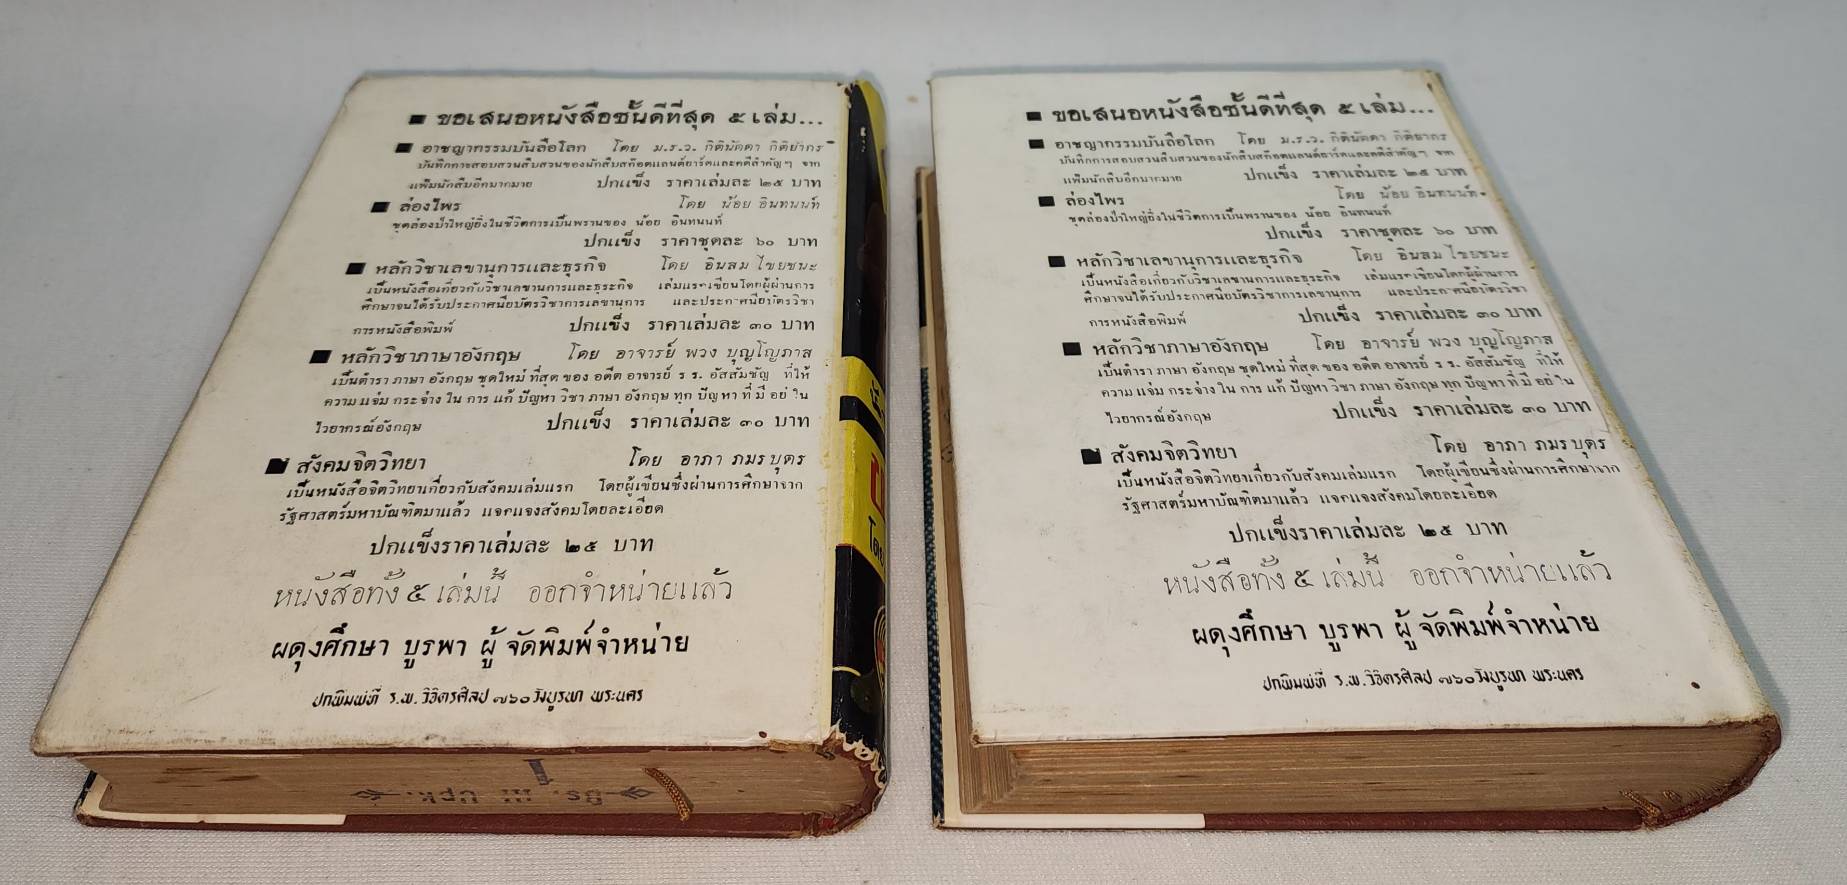 ■ ขอเสนอหนังสือชั้นดีที่สุด ๕ เล่ม...
■ อาชญากรรมบันลือโลก โดย ม.ร.ว. กิตินัดดา กิติยากร
บันทึกการสอบสวนสืบสวนของนักสืบสก๊อตแลนด์ยาร์ดและคดีสำคัญๆ จาก
แฟ้มนักสืบอีกมากมาย ปกแข็ง ราคาเล่มละ ๒๕ บาท
■ ล่องไพร โดย น้อย อินทนนท์
ชุดล่องป่าใหญ่ยิ่งในชีวิตการเป็นพรานของ น้อย อินทนนท์
ปกแข็ง ราคาชุดละ ๖๐ บาท
■ หลักวิชาเลขานุการและธุรกิจ โดย อินสม ไชยชนะ
เป็นหนังสือเกี่ยวกับวิชาเลขานุการและธุระกิจ เล่มแรกเขียนโดยผู้ผ่านการ
ศึกษาจนได้รับประกาศนียบัตรวิชาการเลขานุการ และประกาศนียบัตรวิชา
การหนังสือพิมพ์ ปกแข็ง ราคาเล่มละ ๓๐ บาท
■ หลักวิชาภาษาอังกฤษ โดย อาจารย์ พวง บุญโญภาส
เป็นตำรา ภาษา อังกฤษ ชุดใหม่ ที่สุด ของ อดีต อาจารย์ ร ร. อัสสัมชัญ ที่ให้
ความ แจ่ม กระจ่าง ใน การ แก้ ปัญหา วิชา ภาษา อังกฤษ ทุก ปัญหา ที่ มี อยู่ ใน
ไวยากรณ์อังกฤษ ปกแข็ง ราคาเล่มละ ๓๐ บาท
■ สังคมจิตวิทยา โดย อาภา ภมรบุตร
เป็นหนังสือจิตวิทยาเกี่ยวกับสังคมเล่มแรก โดยผู้เขียนซึ่งผ่านการศึกษาจาก
รัฐศาสตร์มหาบัณฑิตมาแล้ว แจกแจงสังคมโดยละเอียด
ปกแข็งราคาเล่มละ ๒๕ บาท
หนังสือทั้ง ๕ เล่มนี้ ออกจำหน่ายแล้ว
ผดุงศึกษา บูรพา ผู้ จัดพิมพ์จำหน่าย
ปกพิมพ์ที่ ร.พ. วิจิตรศิลป ๗๖๐ วังบูรพา พระนคร
โดย
■ ขอเสนอหนังสือชั้นดีที่สุด ๕ เล่ม...
■ อาชญากรรมบันลือโลก โดย ม.ร.ว. กิตินัดดา กิติยากร
บันทึกการสอบสวนสืบสวนของนักสืบสก๊อตแลนด์ยาร์ดและคดีสำคัญๆ จาก
แฟ้มนักสืบอีกมากมาย ปกแข็ง ราคาเล่มละ ๒๕ บาท
■ ล่องไพร โดย น้อย อินทนนท์
ชุดล่องป่าใหญ่ยิ่งในชีวิตการเป็นพรานของ น้อย อินทนนท์
ปกแข็ง ราคาชุดละ ๖๐ บาท
■ หลักวิชาเลขานุการและธุรกิจ โดย อินสม ไชยชนะ
เป็นหนังสือเกี่ยวกับวิชาเลขานุการและธุระกิจ เล่มแรกเขียนโดยผู้ผ่านการ
ศึกษาจนได้รับประกาศนียบัตรวิชาการเลขานุการ และประกาศนียบัตรวิชา
การหนังสือพิมพ์ ปกแข็ง ราคาเล่มละ ๓๐ บาท
■ หลักวิชาภาษาอังกฤษ โดย อาจารย์ พวง บุญโญภาส
เป็นตำรา ภาษา อังกฤษ ชุดใหม่ ที่สุด ของ อดีต อาจารย์ ร ร. อัสสัมชัญ ที่ให้
ความ แจ่ม กระจ่าง ใน การ แก้ ปัญหา วิชา ภาษา อังกฤษ ทุก ปัญหา ที่ มี อยู่ ใน
ไวยากรณ์อังกฤษ ปกแข็ง ราคาเล่มละ ๓๐ บาท
■ สังคมจิตวิทยา โดย อาภา ภมรบุตร
เป็นหนังสือจิตวิทยาเกี่ยวกับสังคมเล่มแรก โดยผู้เขียนซึ่งผ่านการศึกษาจาก
รัฐศาสตร์มหาบัณฑิตมาแล้ว แจกแจงสังคมโดยละเอียด
ปกแข็งราคาเล่มละ ๒๕ บาท
หนังสือทั้ง ๕ เล่มนี้ ออกจำหน่ายแล้ว
ผดุงศึกษา บูรพา ผู้ จัดพิมพ์จำหน่าย
ปกพิมพ์ที่ ร.พ. วิจิตรศิลป ๗๖๐ วังบูรพา พระนคร